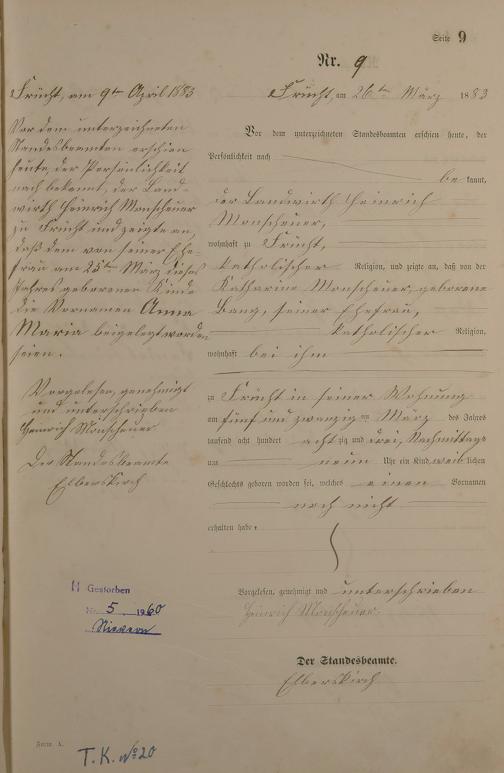 Seite 9
Nr. 9
Frücht, am 9ten April 1883
Vor dem unterzeichneten
Standesbeamten erschien
heute, der Persönlichkeit
nach bekannt, der Land-
wirth Heinrich Monscheuer
zu Frücht und zeigte an,
daß dem von seiner Ehe-
frau am 25ten März dieses
Jahres geborenen Kinde
die Vornamen Anna
Maria beigelegt worden
seien.
Vorgelesen, genehmigt
und unterschrieben
Heinrich Monscheuer
Der Standesbeamte
Elberskirch
Gestorben
Nr. 5 1960
Nievern
Frücht, am 26ten März 1883
Vor dem unterzeichneten Standesbeamten erschien heute, der
Persönlichkeit nach
be kannt,
der Landwirth Heinrich
Monscheuer,
wohnhaft zu Frücht,
katholischer Religion, und zeigte an, daß von der
Katharine Monscheuer, geborene
Bang, seiner Ehefrau,
katholischer Religion,
wohnhaft bei ihm
zu Frücht in seiner Wohnung
am fünf und zwanzigten März des Jahres
tausend acht hundert achtzig und drei, Nachmittags
um neun Uhr ein Kind weiblichen
Geschlechts geboren worden sei, welches einen Vornamen
noch nicht
erhalten habe.
Vorgelesen, genehmigt und unterschrieben
Heinrich Monscheuer
Der Standesbeamte.
Elberskirch
Form A.
T.K. No 20